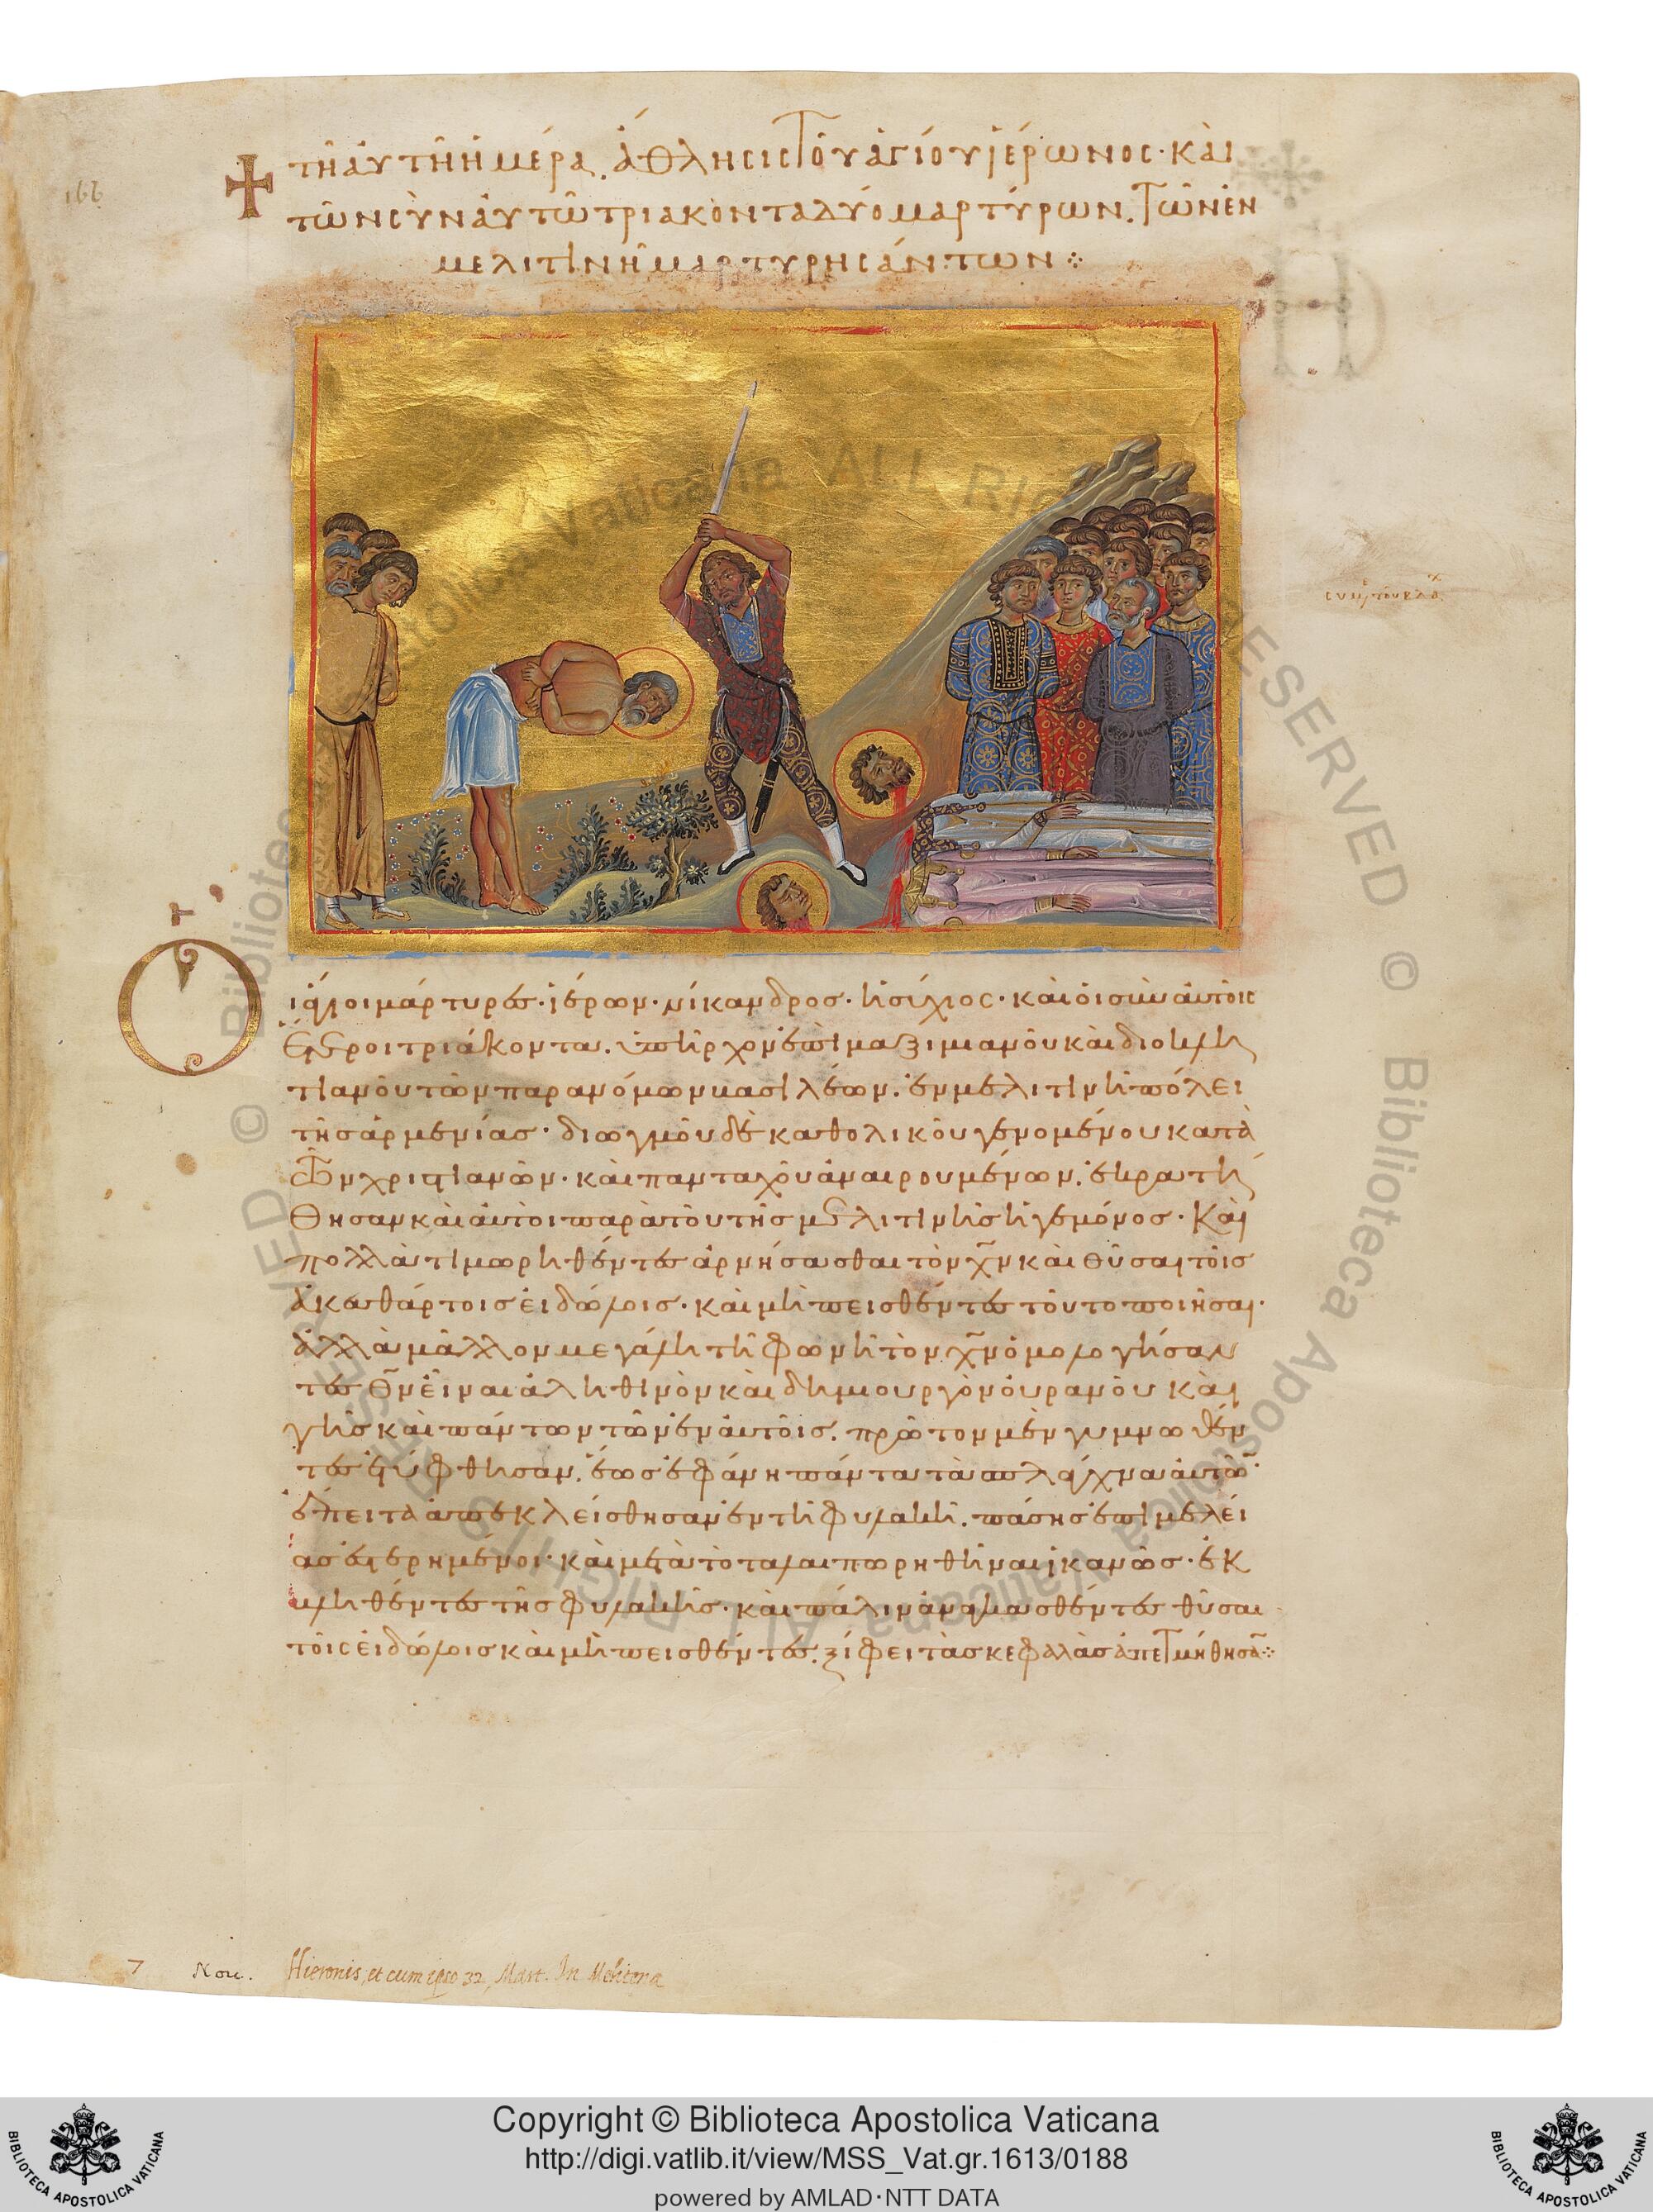 166
τῆ αὐτῆ ἡμέρα. ἄθλησις τοῦ ἁγίου ἱέρωνος· καὶ
τῶν σὺν αὐτῶ τριακονταδύο μαρτύρων. τῶν ἐν
μελιτινῆ μαρτυρησάντων ⁘
Οἱ ἅγιοι μάρτυρες· ἱέρων· νίκανδρος· ἡσύχιος· καὶ οἱ σὺν αὐτοῖς
ἕτεροι τριάκοντα. ὑπῆρχον ἐπὶ μαξιμιανοῦ καὶ διοκλη
τιανοῦ τῶν παρανόμων βασιλέων. ἐν μελιτινῆ πόλει
τῆς ἀρμενίας· διωγμοῦ δὲ καθολικοῦ γενομένου κατὰ
τῶν χριστιανῶν· καὶ πανταχοῦ ἀναιρουμένων. ἐκρατή
θησαν καὶ αὐτοὶ παρὰ τοῦ τῆς μελιτινῆς ἡγεμόνος· Καὶ
πολλὰ τιμωρηθέντες ἀρνήσασθαι τὸν χν καὶ θῦσαι τοῖς
ἀκαθάρτοις εἰδώλοις· καὶ μὴ πεισθέντες τοῦτο ποιῆσαι·
ἀλλὰ μᾶλλον μεγάλη τῆ φωνῆ τὸν χν ὁμολογήσαν
τες θν εἶναι ἀληθινὸν καὶ δημιουργὸν οὐρανοῦ καὶ
γῆς καὶ πάντων τῶν ἐν αὐτοῖς. πρῶτον μὲν γυμνωθέν
τες ἐτύφθησαν. ἕως ἐφάνη πάντα τὰ σπλάγχνα αὐτῶ·
ἔπειτα ἀπεκλείσθησαν ἐν τῆ φυλακῆ. πάσης ἐπιμελεί
ας ἐστερημένοι· καὶ μετὰ τὸ ταλαιπωρηθῆναι ἱκανῶς· ἐκ
βληθέντες τῆς φυλακῆς· καὶ πάλιν ἀναγκασθέντες θῦσαι
τοῖς εἰδώλοις καὶ μὴ πεισθέντες. ξίφει τὰς κεφαλὰς ἀπετμήθησα ⁘
7 Nou. Hieronis, et cum ipso 32, Mart. In Melitena
© Biblioteca Apostolica Vaticana ALL RIGHTS RESERVED © Biblioteca Apostolica Vaticana ALL RIGHTS RESERVED
Copyright © Biblioteca Apostolica Vaticana
http://digi.vatlib.it/view/MSS_Vat.gr.1613/0188
powered by AMLAD·NTT DATA
BIBLIOTECA APOSTOLICA VATICANA
BIBLIOTECA APOSTOLICA VATICANA